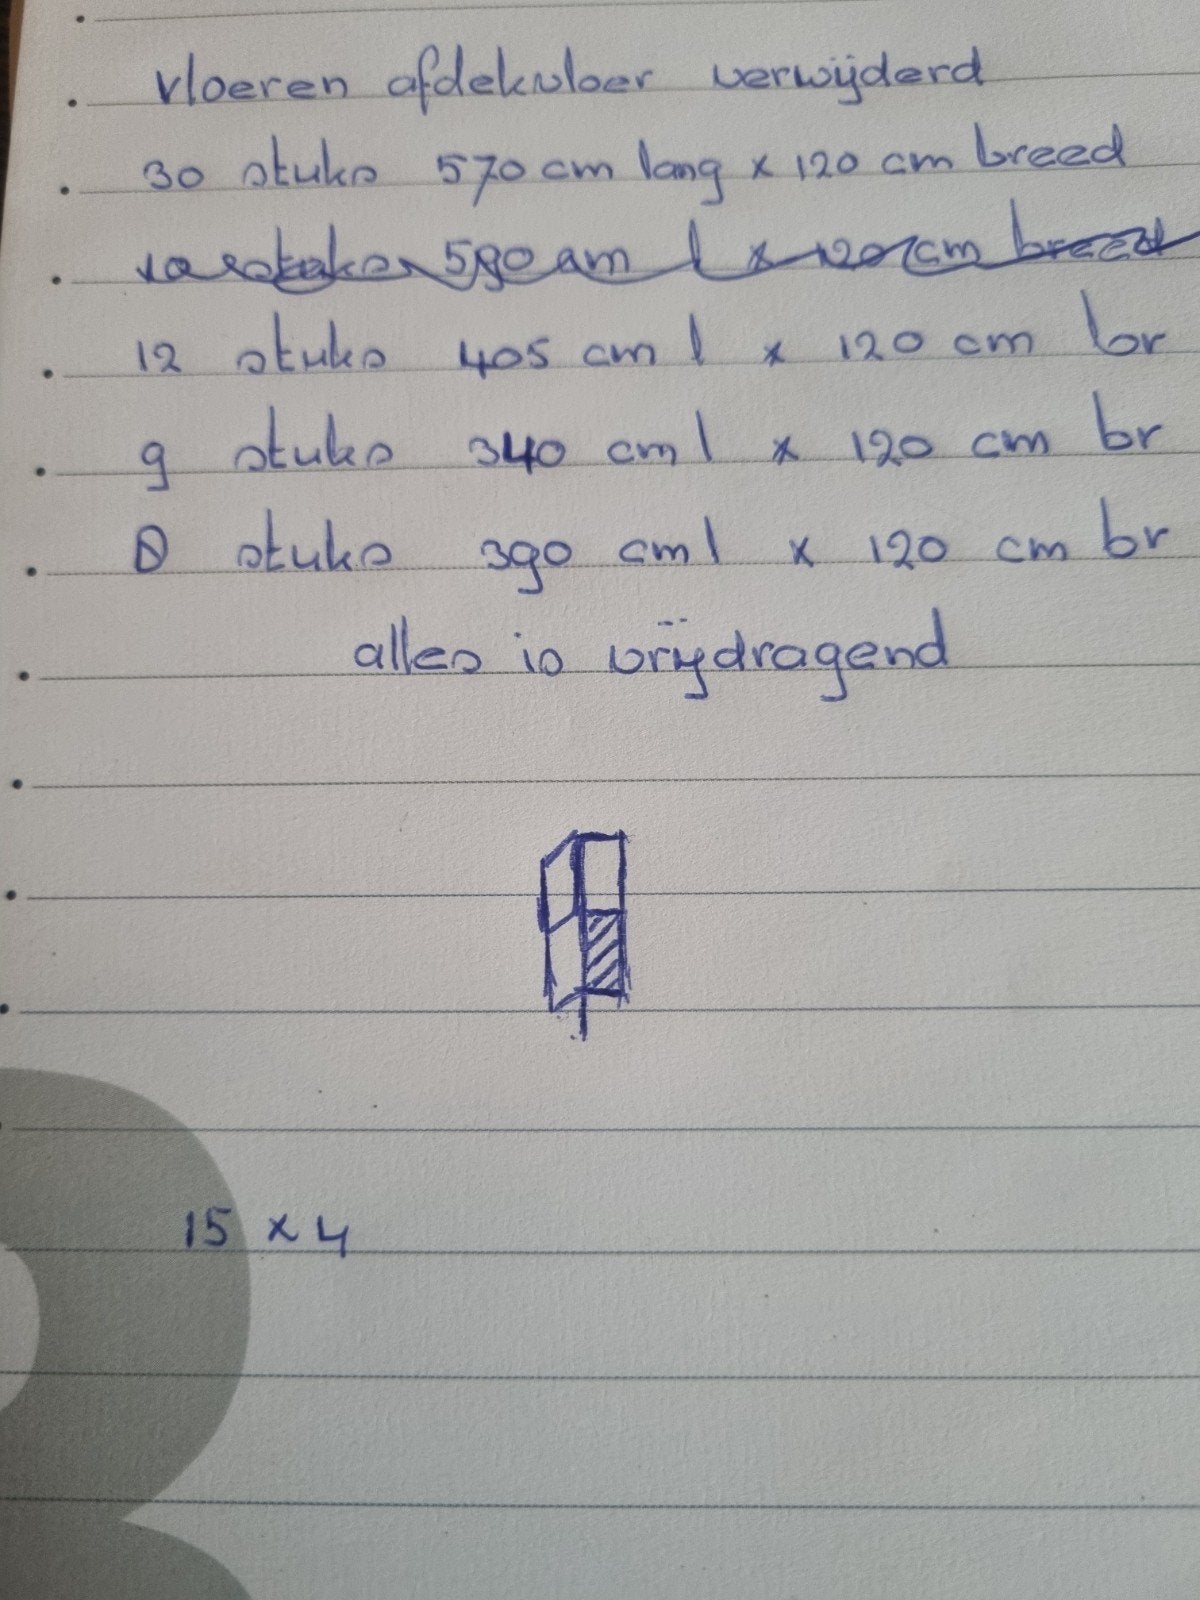 vloeren afdekvloer verwijderd
30 stuks 570 cm lang x 120 cm breed
stuks 590 cm l x 120 cm breed
12 stuks 405 cm l x 120 cm br
9 stuks 340 cm l x 120 cm br
stuks 390 cm l x 120 cm br
alles is vrijdragend
15 x 4